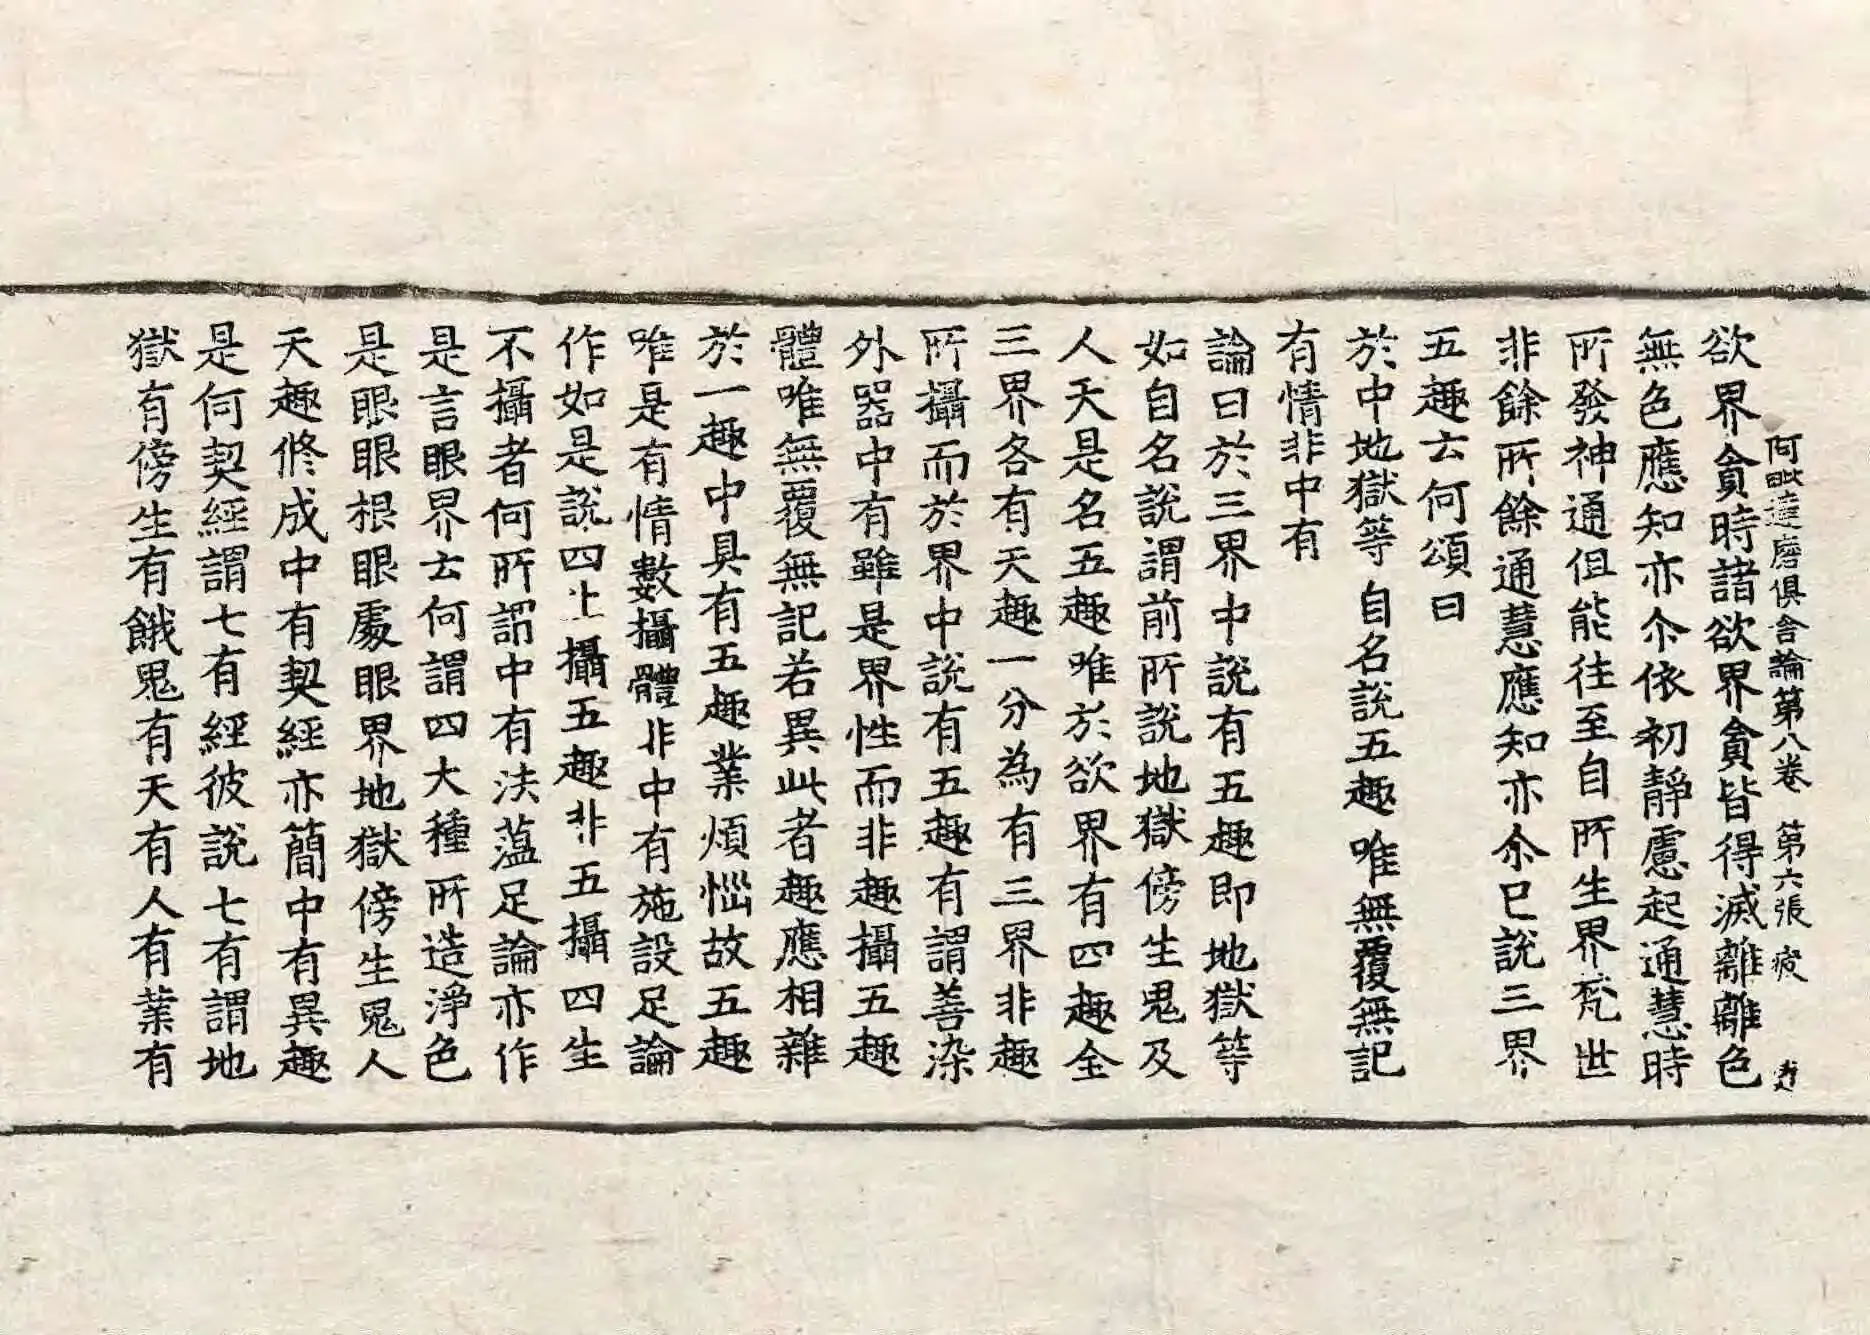 阿毗達磨俱舍論第八卷 第六張 疲
欲界貪時諸欲界貪皆得滅離離色
無色應知亦尒依初靜慮起通慧時
所發神通但能往至自所生界梵世
非餘所餘通慧應知亦尒已說三界
五趣云何頌曰
於中地獄等 自名說五趣 唯無覆無記
有情非中有
論曰於三界中說有五趣即地獄等
如自名說謂前所說地獄傍生鬼及
人天是名五趣唯於欲界有四趣全
三界各有天趣一分為有三界非趣
所攝而於界中說有五趣有謂善染
外器中有雖是界性而非趣攝五趣
體唯無覆無記若異此者趣應相雜
於一趣中具有五趣業煩惱故五趣
唯是有情數攝體非中有施設足論
作如是說四生攝五趣非五攝四生
不攝者何所謂中有法蘊足論亦作
是言眼界云何謂四大種所造淨色
是眼眼根眼處眼界地獄傍生鬼人
天趣修成中有契經亦簡中有異趣
是何契經謂七有經彼說七有謂地
獄有傍生有餓鬼有天有人有業有